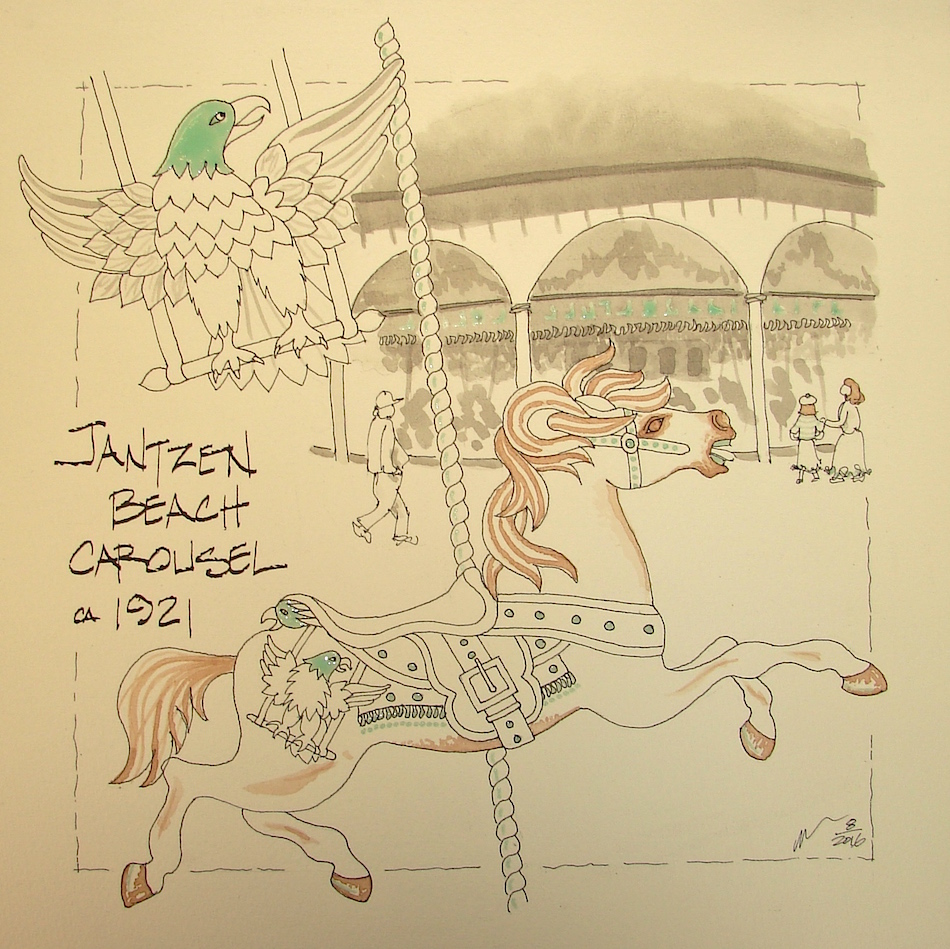 JANTZEN
BEACH
CAROUSEL
CA 1921
8
2016